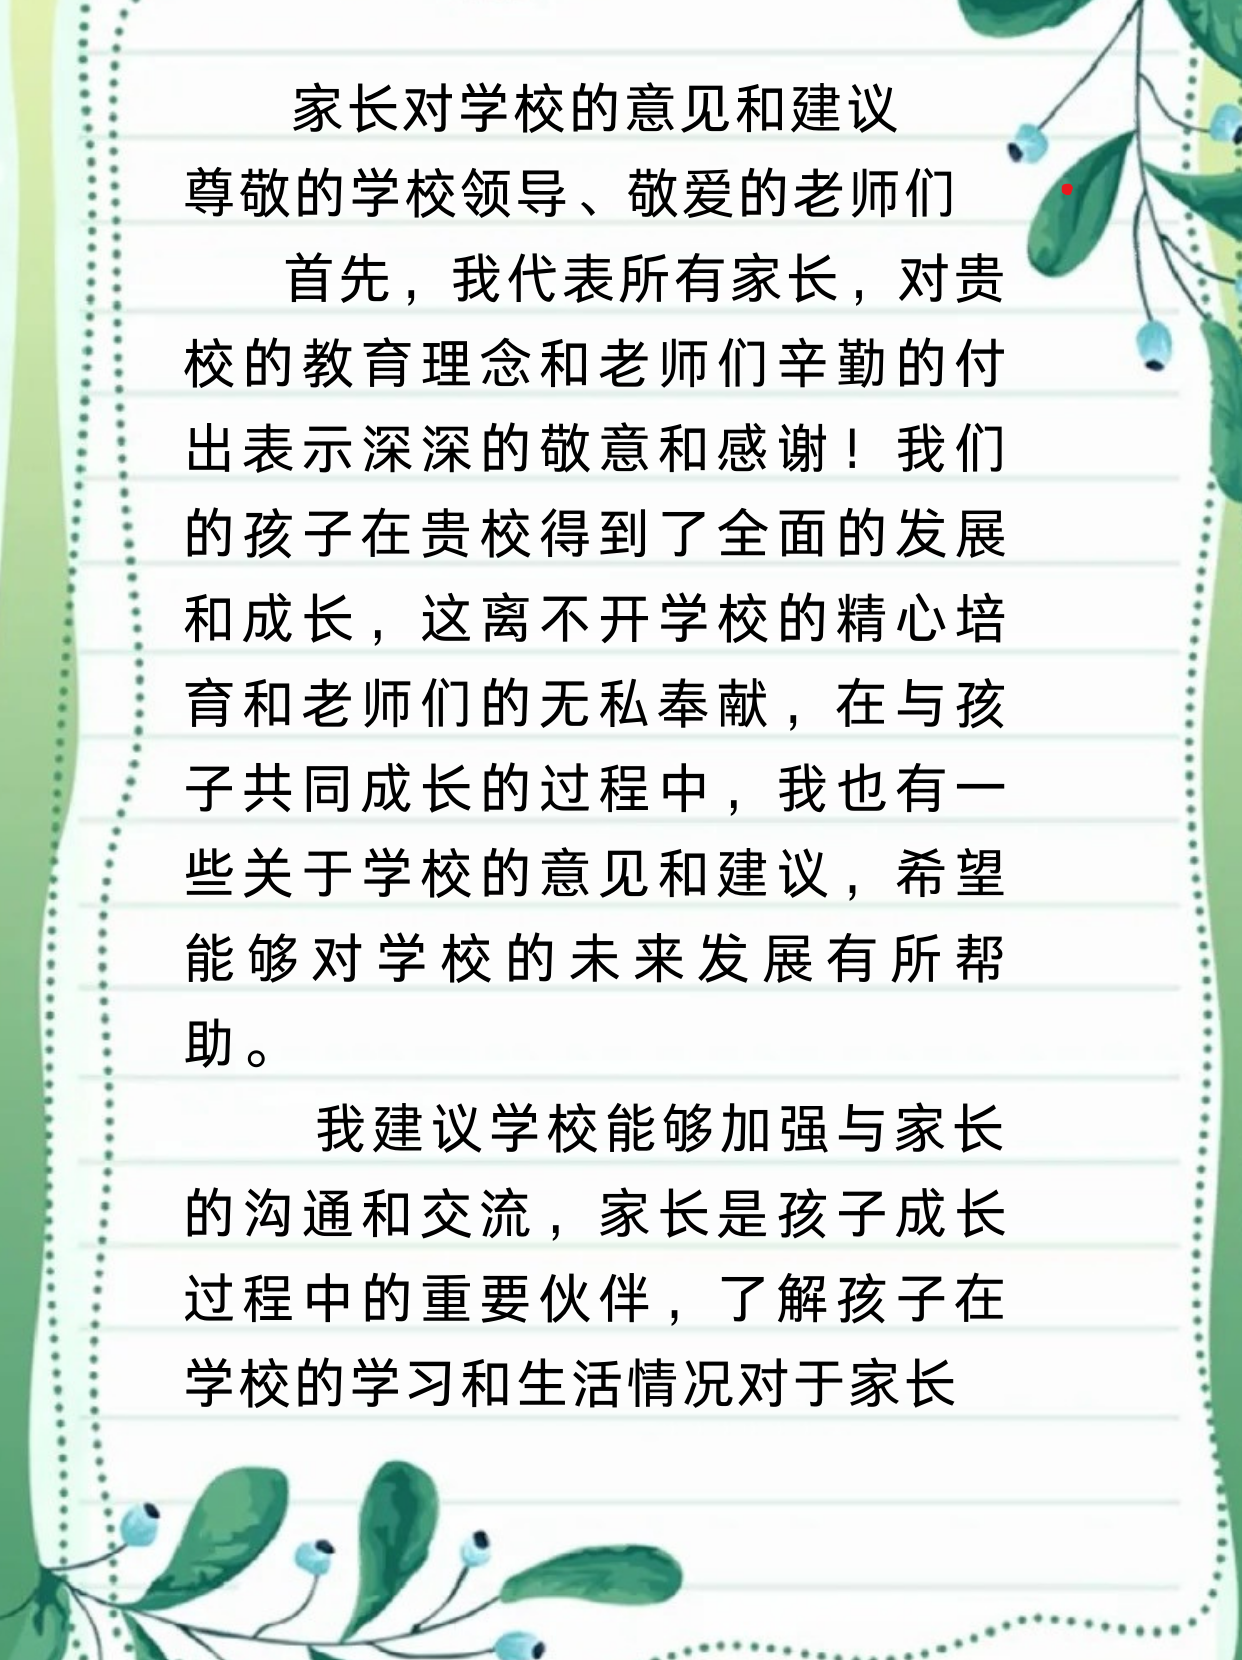 家长对学校的意见和建议
尊敬的学校领导、敬爱的老师们
首先，我代表所有家长，对贵
校的教育理念和老师们辛勤的付
出表示深深的敬意和感谢！我们
的孩子在贵校得到了全面的发展
和成长，这离不开学校的精心培
育和老师们的无私奉献，在与孩
子共同成长的过程中，我也有一
些关于学校的意见和建议，希望
能够对学校的未来发展有所帮
助。
我建议学校能够加强与家长
的沟通和交流，家长是孩子成长
过程中的重要伙伴，了解孩子在
学校的学习和生活情况对于家长